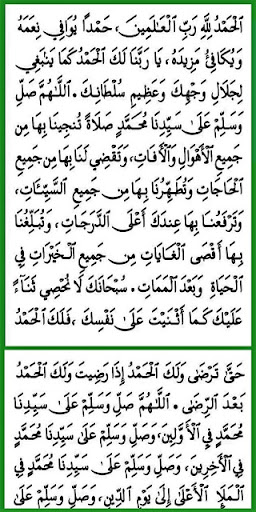 الْحَمْدُ لِلَّهِ رَبِّ الْعَالَمِينَ، حَمْدًا يُوَافِي نِعَمَهُ
وَيُكَافِئُ مَزِيدَهُ، يَا رَبَّنَا لَكَ الْحَمْدُ كَمَا يَنْبَغِي
لِجَلَالِ وَجْهِكَ وَعَظِيمِ سُلْطَانِكَ. اَللّٰهُمَّ صَلِّ
وَسَلِّمْ عَلَى سَيِّدِنَا مُحَمَّدٍ صَلَاةً تُنْجِينَا بِهَا مِنْ
جَمِيعِ الْأَهْوَالِ وَالْآفَاتِ، وَتَقْضِي لَنَا بِهَا مِنْ جَمِيعِ
الْحَاجَاتِ وَتُطَهِّرُنَا بِهَا مِنْ جَمِيعِ السَّيِّئَاتِ،
وَتَرْفَعُنَا بِهَا عِنْدَكَ أَعْلَى الدَّرَجَاتِ، وَتُبَلِّغُنَا
بِهَا أَقْصَى الْغَايَاتِ مِنْ جَمِيعِ الْخَيْرَاتِ فِي
الْحَيَاةِ وَبَعْدَ الْمَمَاتِ. سُبْحَانَكَ لَا نُحْصِي ثَنَاءً
عَلَيْكَ كَمَا أَثْنَيْتَ عَلَى نَفْسِكَ، فَلَكَ الْحَمْدُ
حَتَّى تَرْضَى وَلَكَ الْحَمْدُ إِذَا رَضِيتَ وَلَكَ الْحَمْدُ
بَعْدَ الرِّضَى. اَللّٰهُمَّ صَلِّ وَسَلِّمْ عَلَى سَيِّدِنَا
مُحَمَّدٍ فِي الْأَوَّلِينَ، وَصَلِّ وَسَلِّمْ عَلَى سَيِّدِنَا مُحَمَّدٍ
فِي الْآخِرِينَ، وَصَلِّ وَسَلِّمْ عَلَى سَيِّدِنَا مُحَمَّدٍ فِي
الْمَلَإِ الْأَعْلَى إِلَى يَوْمِ الدِّينِ، وَصَلِّ وَسَلِّمْ عَلَى